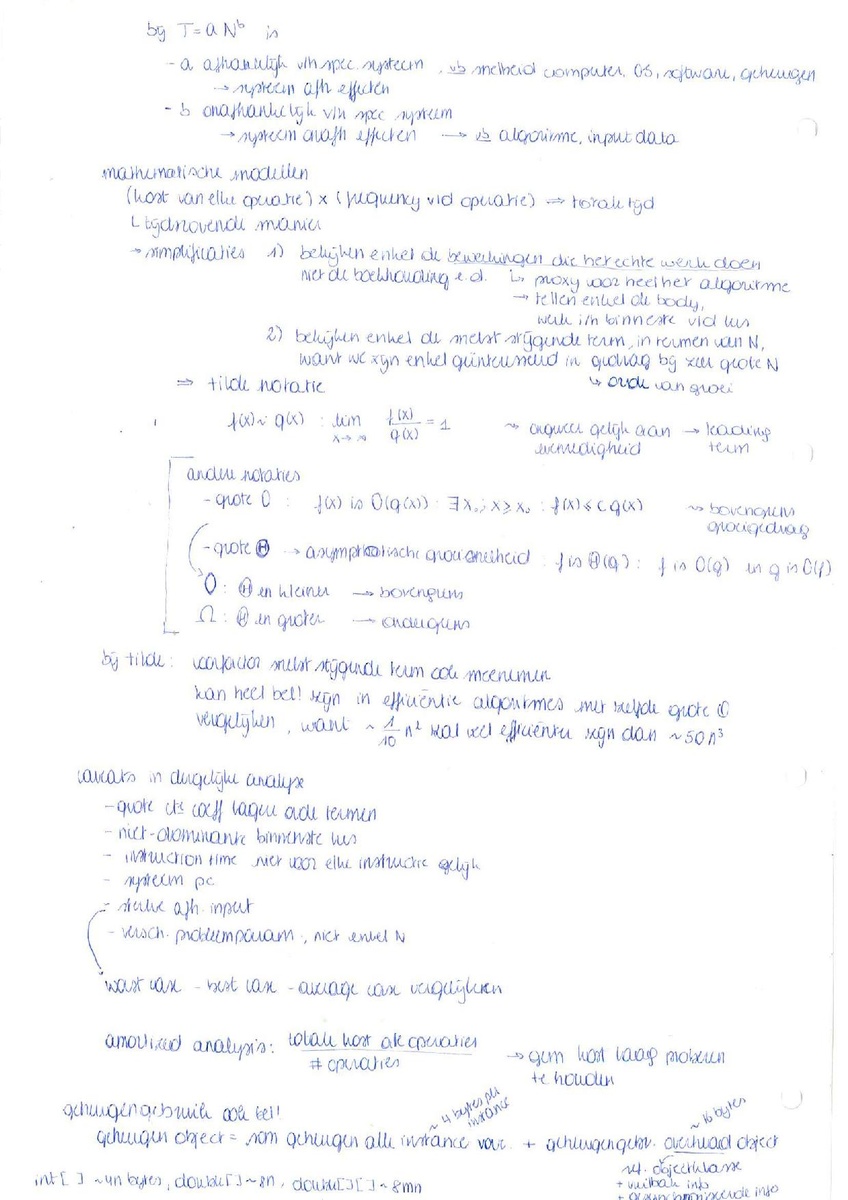 bij T = a N^b is
- a afhankelijk v/h spec. systeem , vb snelheid computer, OS, software, geheugen
→ systeem afh effecten
- b onafhankelijk v/h spec systeem
→ systeem onafh effecten → vb algoritme, input data
mathematische modellen
(kost van elke operatie) x (frequency v/d operatie) → totale tijd
↳ tijdrovende manier
→ simplificaties 1) bekijken enkel de bewerkingen die het echte werk doen
niet de boekhouding e.d. ↳ proxy voor heel het algoritme
→ tellen enkel de body,
werk i/h binneste v/d lus
2) bekijken enkel de snelst stijgende term, in termen van N,
want we zijn enkel geïnteresseerd in gedrag bij zeer grote N
⇒ tilde notatie ↳ orde van groei
f(x) ~ g(x) : lim x→∞ f(x)/g(x) = 1 ~ ongeveer gelijk aan → leading
evenredigheid term
andere notaties
- grote O : f(x) is O(g(x)) : ∃ x₀ ; x ≥ x₀ : f(x) ≤ c g(x) ~ bovengrens
groeigedrag
- grote Θ → asymptotische groeisnelheid : f is Θ(g) : f is O(g) en g is O(f)
O : Θ en kleiner → bovengrens
Ω : Θ en groter → ondergrens
bij tilde : voorfactor snelst stijgende term ook meenemen
kan heel bel! zijn in efficiëntie algoritmes met zelfde grote Θ
vergelijken , want ~ 1/10 n² zal veel efficiënter zijn dan ~ 50 n³
caveats in dergelijke analyse
- grote cts coeff lagere orde termen
- niet-dominante binnenste lus
- instruction time niet voor elke instructie gelijk
- systeem pc
- sterke afh. input
- versch. probleemparam., niet enkel N
worst case - best case - average case vergelijken
amortized analysis : totale kost alle operaties / # operaties → gem kost laag proberen
te houden
geheugengebruik ook bel!
~ 4 bytes per instance
~ 16 bytes
geheugen object = som geheugen alle instance var. + geheugengebr. overhead object
ref. objectklasse
int[] ~ 4n bytes , double[] ~ 8n , double[][] ~ 8mn
+ vuilbak info
+ gesynchroniseerde info